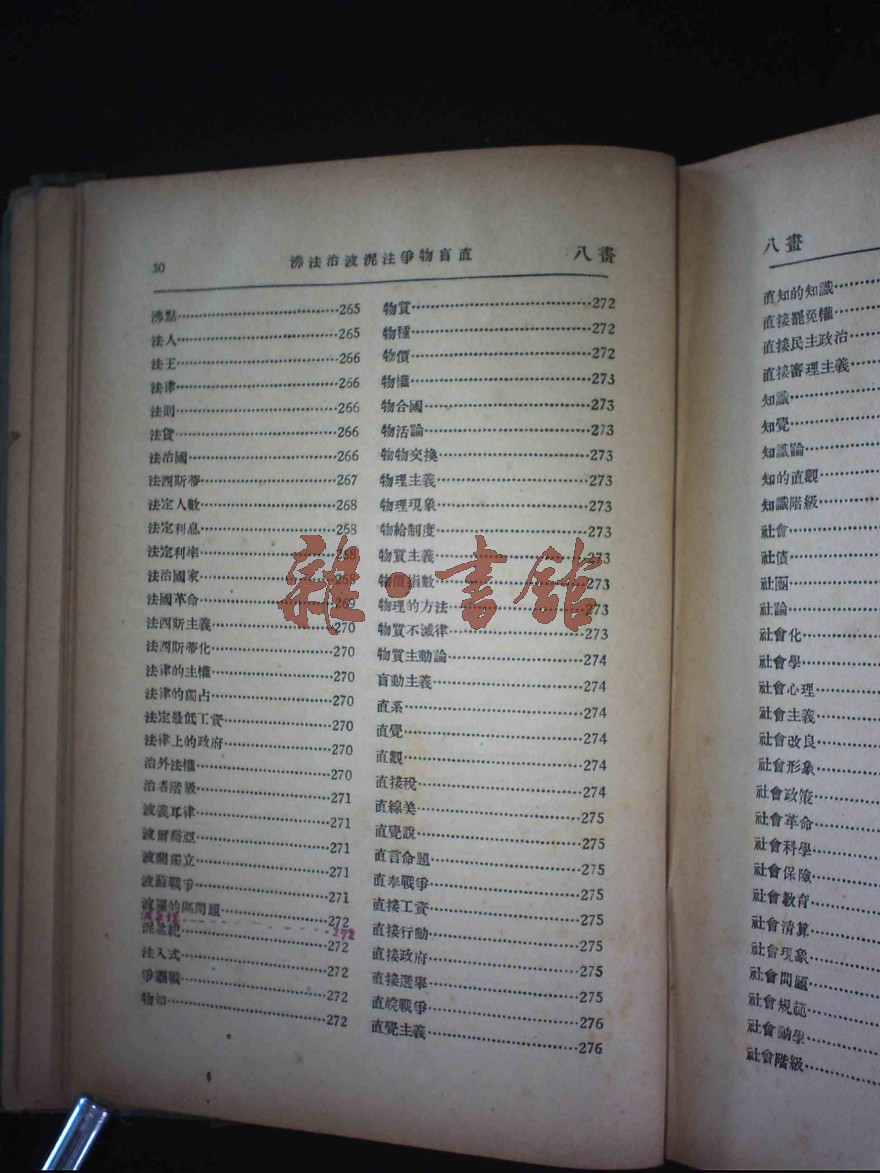 30 沸法治波泥注爭物盲直 八畫
沸點 265
法人 265
法王 266
法律 266
法則 266
法貨 266
法治國 266
法西斯蒂 267
法定人數 268
法定利息 268
法定利率 268
法治國家
法國革命 269
法西斯主義 270
法西斯蒂化 270
法律的主權 270
法律的獨占 270
法定最低工資 270
法律上的政府 270
治外法權 270
治者階級 271
波義耳律 271
波爾喬亞 271
波蘭獨立 271
波蘇戰爭 271
波羅的區問題 272
272
泥盆紀 272
注入式 272
爭霸戰 272
物如 272
物質 272
物種 272
物價 272
物權 273
物合國 273
物活論 273
物物交換 273
物理主義 273
物理現象 273
物給制度 273
物質主義 273
物價指數 273
物理的方法 273
物質不滅律 273
物質主動論 274
盲動主義 274
直系 274
直覺 274
直觀 274
直接稅 274
直線美 275
直覺說 275
直言命題 275
直奉戰爭 275
直接工資 275
直接行動 275
直接政府 275
直接選舉 275
直皖戰爭 276
直覺主義 276
八畫
直知的知識
直接罷免權
直接民主政治
直接審理主義
知識
知覺
知識論
知的直觀
知識階級
社會
社債
社團
社論
社會化
社會學
社會心理
社會主義
社會改良
社會形象
社會政策
社會革命
社會科學
社會保險
社會教育
社會清算
社會現象
社會問題
社會規範
社會動學
社會階級
雜·書館